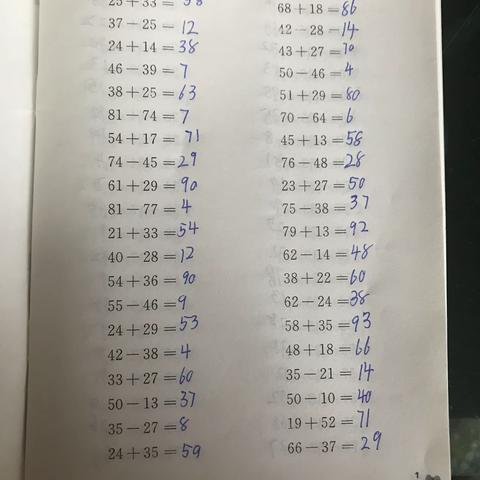 25+33=58
37-25=12
24+14=38
46-39=7
38+25=63
81-74=7
54+17=71
74-45=29
61+29=90
81-77=4
21+33=54
40-28=12
54+36=90
55-46=9
24+29=53
42-38=4
33+27=60
50-13=37
35-27=8
24+35=59
68+18=86
42-28=14
43+27=70
50-46=4
51+29=80
70-64=6
45+13=58
76-48=28
23+27=50
75-38=37
79+13=92
62-14=48
38+22=60
62-24=38
58+35=93
48+18=66
35-21=14
50-10=40
19+52=71
66-37=29
1